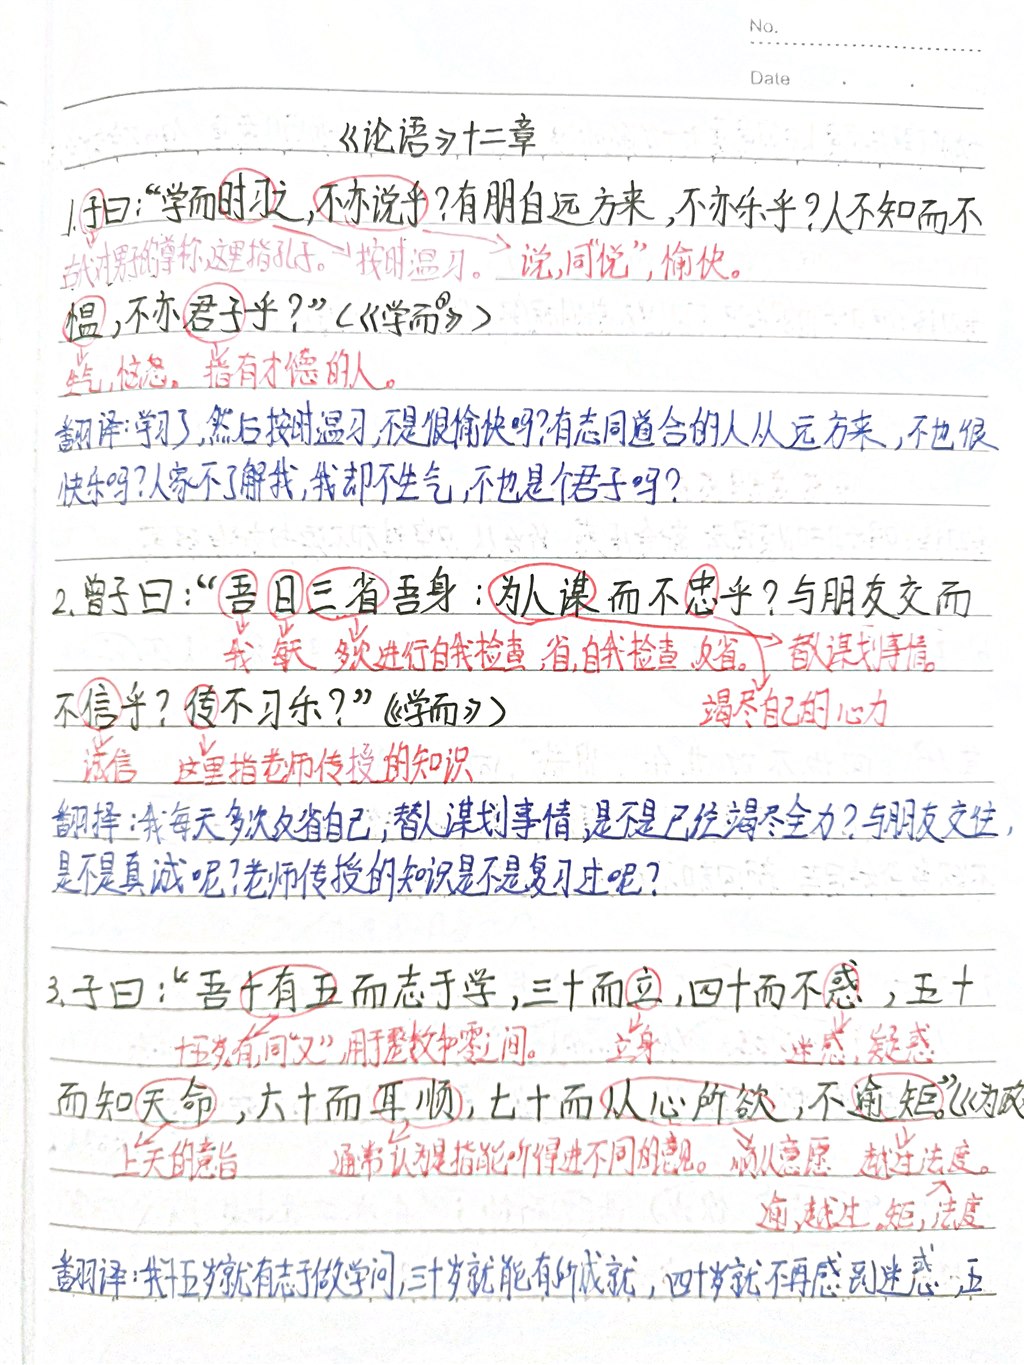 No.
Date
《论语》十二章
1.子曰:“学而时习之,不亦说乎?有朋自远方来,不亦乐乎?人不知而不
古代对男子的尊称,这里指孔子。 按时温习。 说,同“悦”,愉快。
愠,不亦君子乎?”(《学而》)
生气,恼怒。 指有才德的人。
翻译:学习了,然后按时温习,不是很愉快吗?有志同道合的人从远方来,不也很
快乐吗?人家不了解我,我却不生气,不也是个君子吗?
2.曾子曰:“吾日三省吾身:为人谋而不忠乎?与朋友交而
我 每天 多次进行自我检查,省,自我检查 反省。 替人谋划事情。
不信乎?传不习乐?”(《学而》)
竭尽自己的心力
诚信 这里指老师传授的知识
翻择:我每天多次反省自己,替人谋划事情,是不是已经竭尽全力?与朋友交往,
是不是真诚呢?老师传授的知识是不是复习过呢?
3.子曰:“吾十有五而志于学,三十而立,四十而不惑,五十
十五岁,有,同“又”,用于整数和零之间。 立身 迷惑,疑惑
而知天命,六十而耳顺,七十而从心所欲,不逾矩。”(《为政
上天的意旨 通常认为是指能听得进不同的意见。 顺从意愿 越过法度。
逾,越过。矩,法度
翻译:我十五岁就有志于做学问,三十岁就能有所成就,四十岁就不再感到迷惑,五